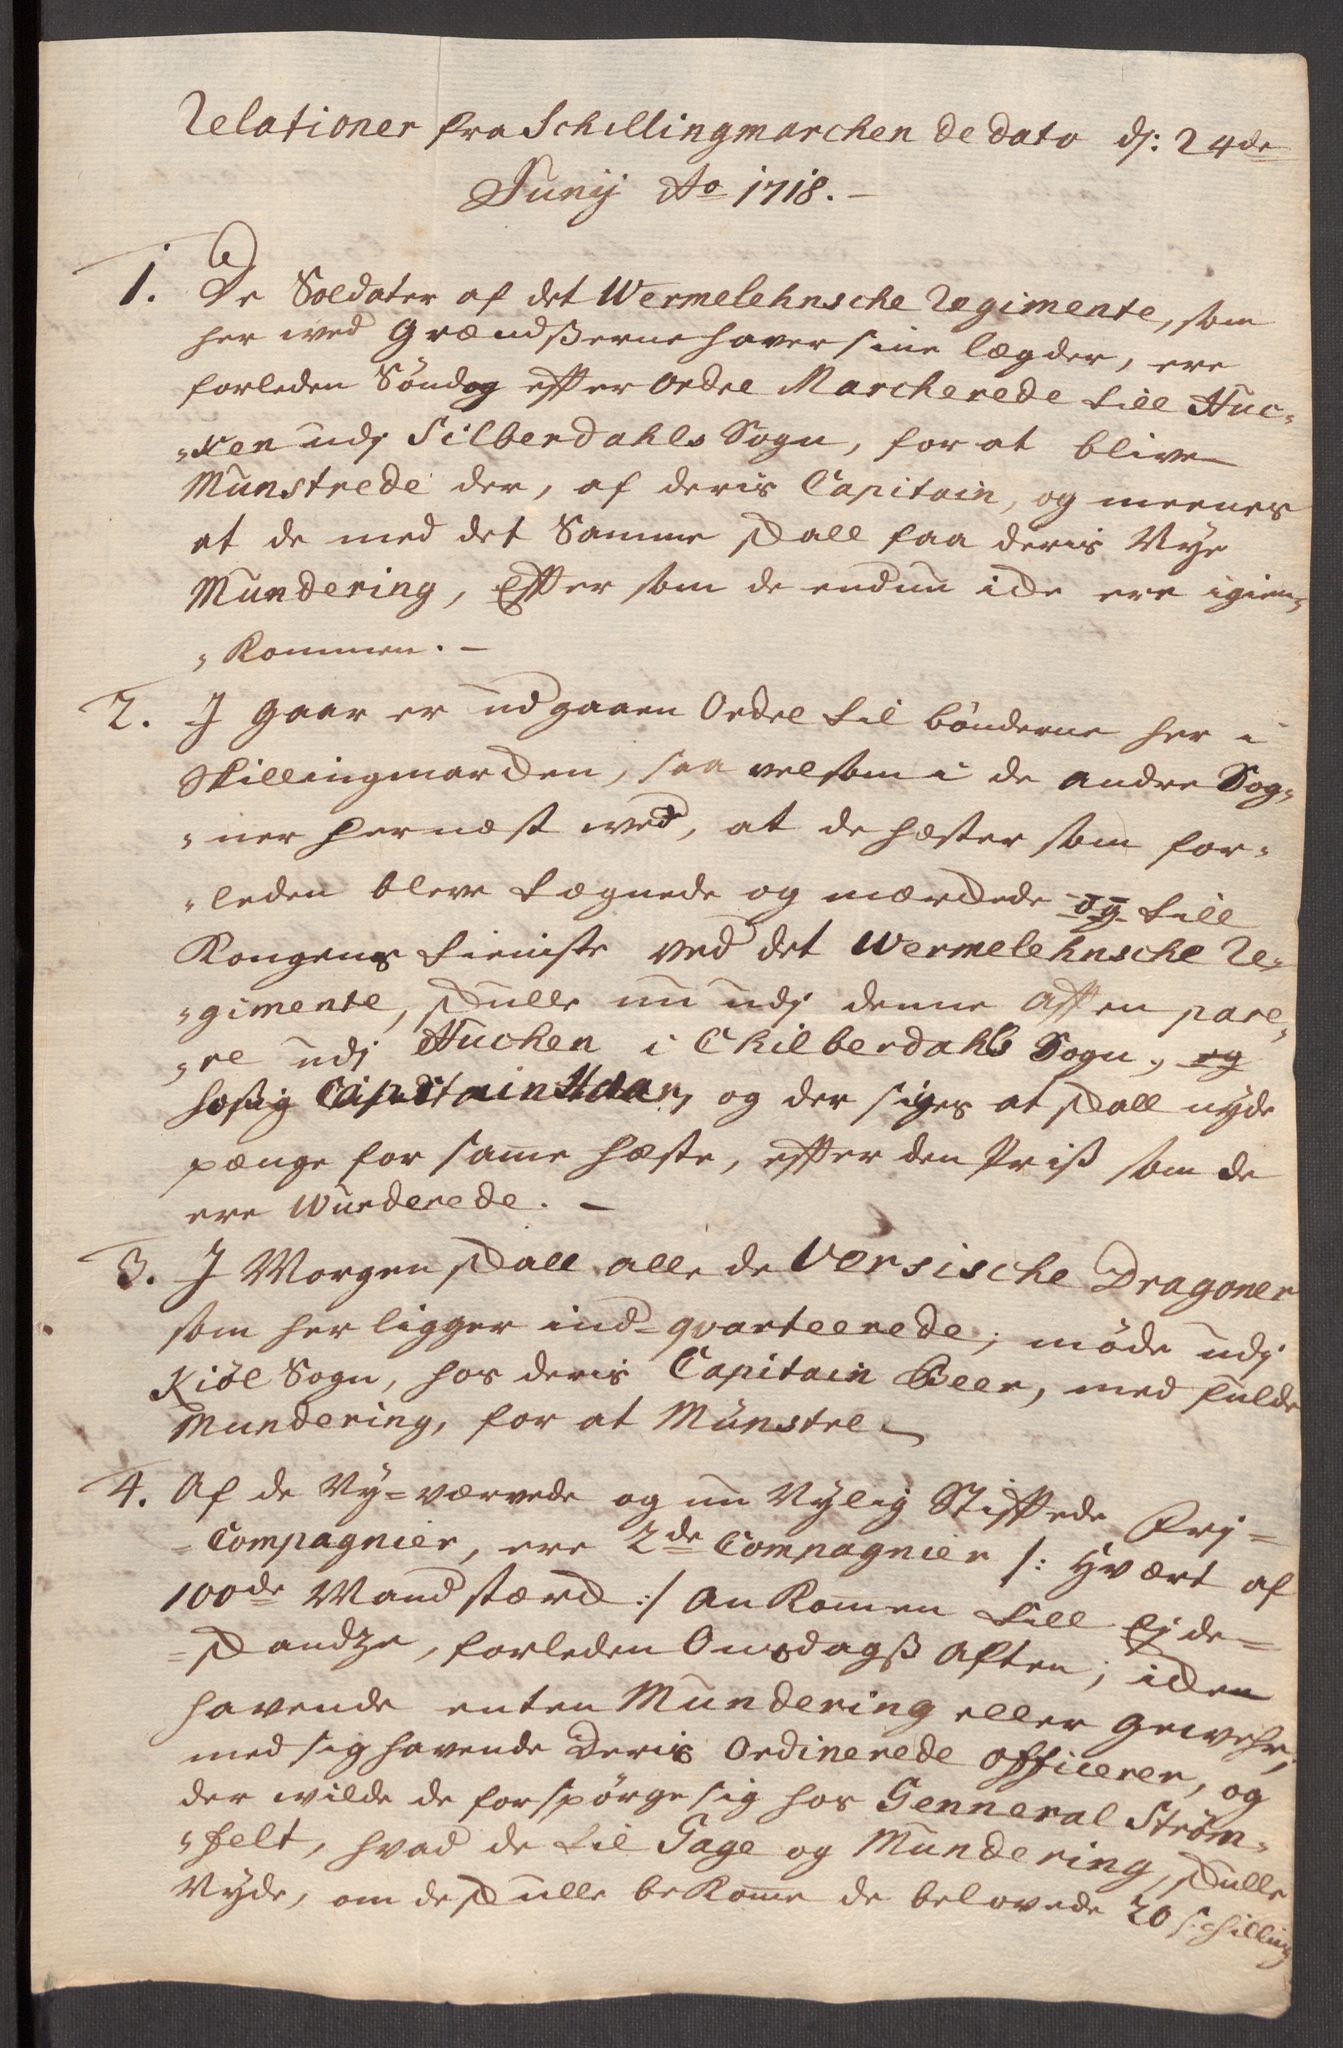 Relationer fra Schillingmarchen de dato d: 24de
Junij Ao 1718. –
1. De Soldater af det Wermelehnsche Regimente, som
her ved Grændsserne haver sine lægder, ere
forleden Söndag effter Ordre Marcherede till Huc-
-ken udj Silberdahls Sogn, for at blive
Munstrede der, af deris Capitain, og meenes
at de med det Samme skall faa deris Nye
Mundering, Effter som de endnu icke ere igien-
-kommen. –
2. J Gaar er udgaaen Ordre til bönderne her i
Skillingmarcken, saa vel som i de andre Sog-
-ner hernæst ved, at de hæster som for-
-leden bleve tægnede og mærckede og till
Kongens tieniste ved det Wermelehnsche Re-
-gimente, skulle nu udj denne Afften pare-
-re udj Huchen i Chilberdahls Sogn, og
hossig Capitain Haar, og der siges at skall nyde
pænge for same hæste, effter den Priss som de
ere Wurderede. –
3. J Morgen skall alle de Versische Dragoner
som her ligger ind-qvarteerede, möde udj
Kiöl Sogn, hos deris Capitain Beer, med fulde
Mundering, for at Münstre
4. Af de Ny-værvede og nu Nylig Stifftede Frj-
-Compagnier, ere 2de Compagnier /: Hvært af
100de Mand stærck :/ an komen till Ejde-
-skandze, forleden Onsdagss Aften; icken
havende enten Mundering eller Gewehr,
med sig havende deris Ordinerede Officerer, og
der wilde de forspörge sig hos Genneral Ström-
-felt, hvad de til Gage og Mundering, skulle
Nyde, om de skulle bekome de belovede 20 schilling